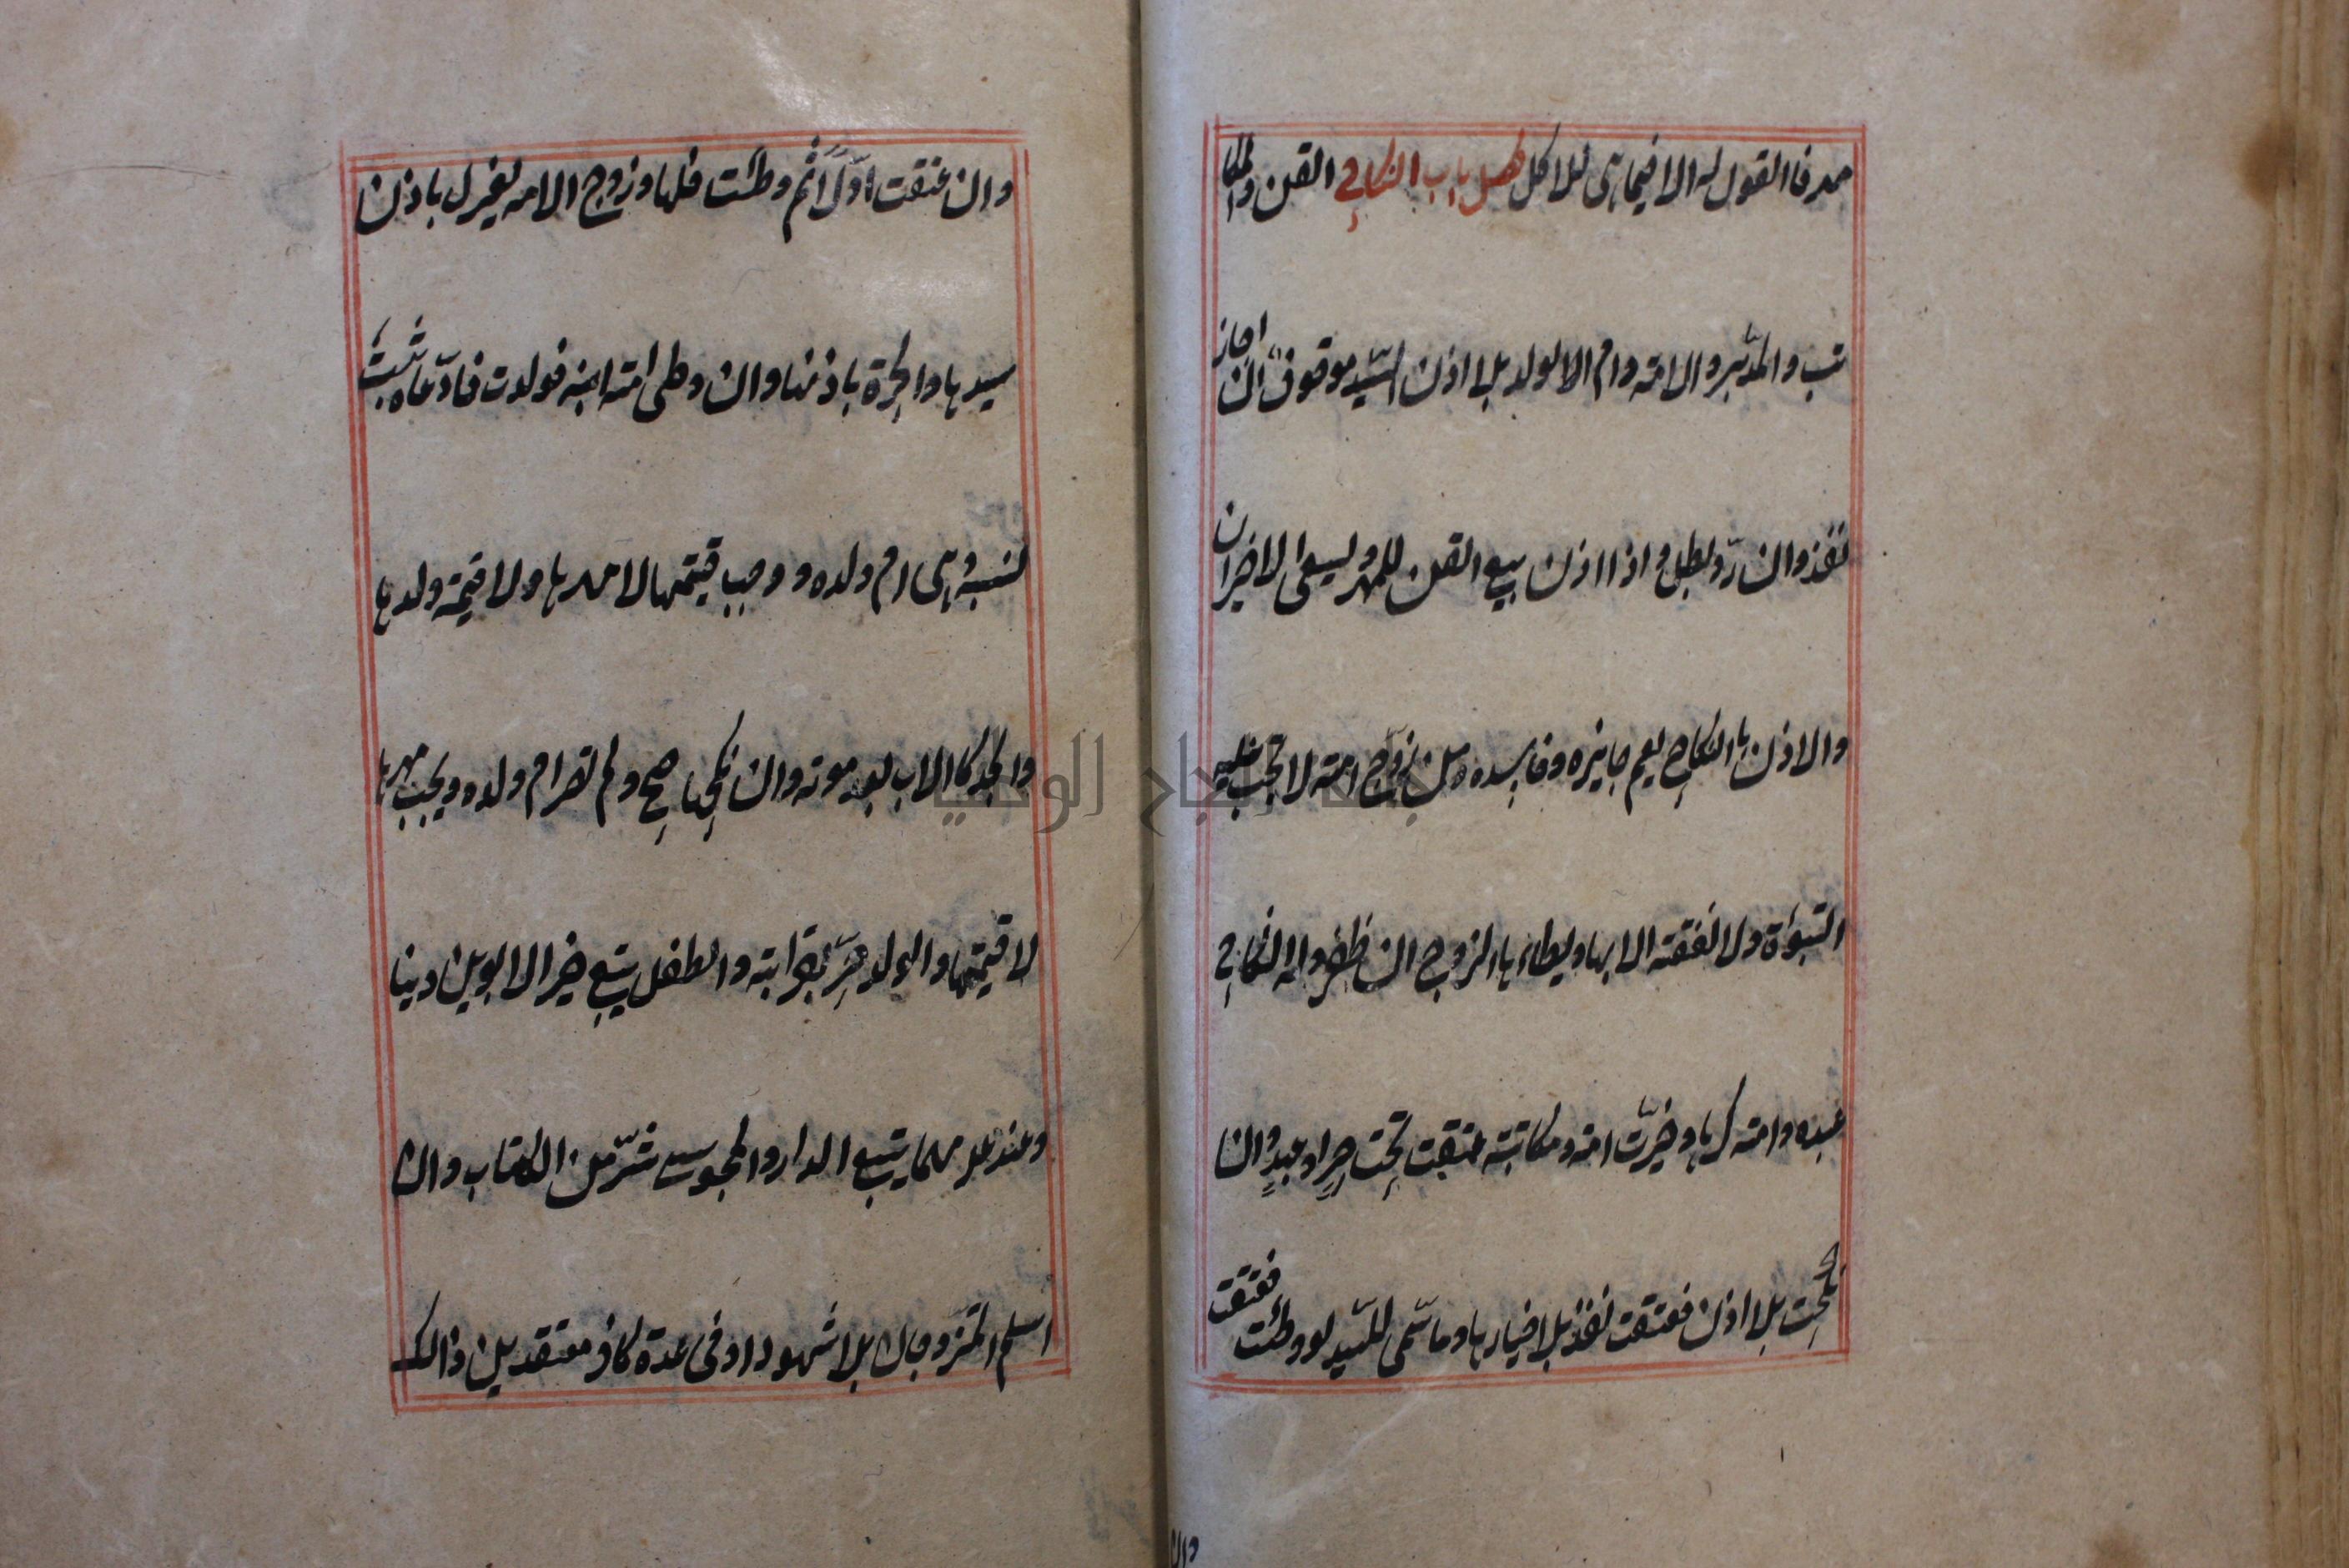 مهر فالقول له الا فيما هيئ للاكل فصل باب النكاح القن والمكا
تب والمدبر والامة وام الولد بلا اذن السيد موقوف ان اجاز
نفذ وان رد بطل واذا اذن بيع القن للمهر ويسعى الاخران
والاذن بالنكاح يعم جايزه وفاسده ومن زوج امته لا تجب عليه
التبوأة ولا نفقة الا بها ويطاءها الزوج ان ظفر وله انكاح
عبده وامته كرها وخيرت امة ومكاتبة عتقت تحت حر او عبد وان
نكحت بلا اذن فعتقت نفذ بلا خيار لها وما سمى للسيد لو وطئت فعتقت
وان عتقت اولا ثم وطئت فلها وزوج الامة يعزل باذن
سيدها والحرة باذنها وان وطى امة ابنه فولدت فادعاه ثبت
نسبه وهى ام ولده ووجب قيمتها لا مهرها ولا قيمة ولدها
والجد كالاب بعد موته وان نكحها صح ولم تصر ام ولده ويجب مهرها
لا قيمتها والولد حر بقرابته والطفل يتبع خير الابوين دينا
وعند عدمهما يتبع الدار والمجوسى شر من الكتاب وان
اسلم المتزوجان بلا شهود او فى عدة كافر معتقدين ذالك
وان
جامعة النجاح الوطنية